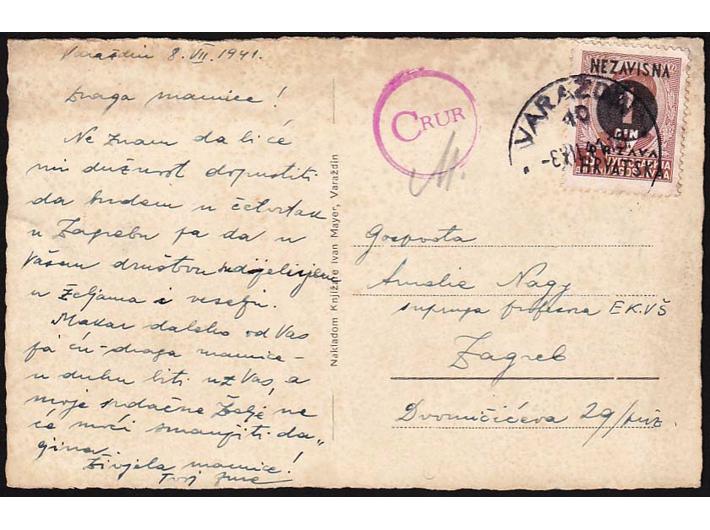 Varaždin 8. VII. 1941.
Draga mamice!
Ne znam da li će
mi dužnost dopustiti
da budem u četvrtak
u Zagrebu pa da u
Vašem društvu
u željama i veselju.
Makar daleko od Vas
pa ću - draga mamice -
u duhu biti uz Vas, a
moje srdačne želje ne
će moći smanjiti da„
gina.
Živjela mamice!
Tvoj
Nakladom Knjižare Ivan Mayer, Varaždin
CRUR
M.
VARAŽDIN
10
NEZAVISNA
1
DIN
DRŽAVA
HRVATSKA
Gospođa
Amalie Nagy
supruga profesora EKVŠ
Zagreb
29/priz.